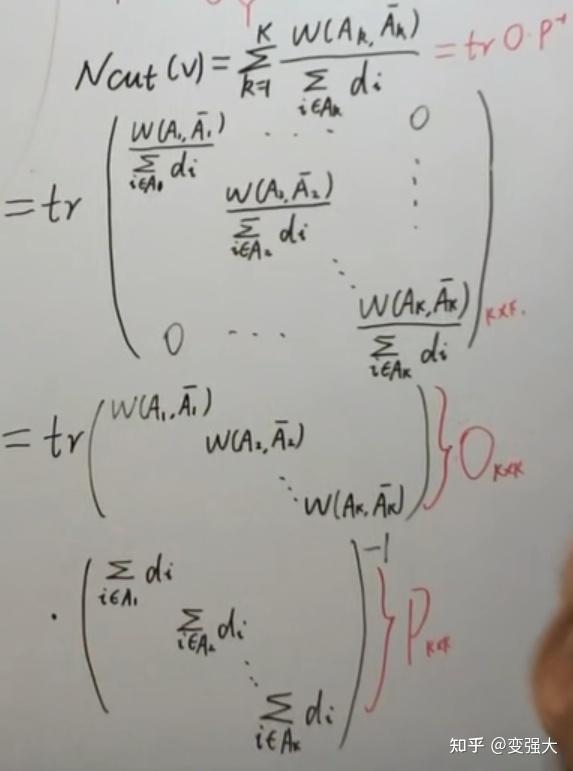 Ncut(V) = ∑_{k=1}^{K} W(A_k, Ā_k) / ∑_{i∈A_k} d_i = tr O·P⁻¹
= tr ( W(A₁, Ā₁) / ∑_{i∈A₁} d_i ... 0
W(A₂, Ā₂) / ∑_{i∈A₂} d_i ⋮
⋱
0 ... W(A_K, Ā_K) / ∑_{i∈A_K} d_i )_{K×K}.
= tr ( W(A₁, Ā₁)
W(A₂, Ā₂)
⋱ W(A_K, Ā_K) ) } O_{K×K}
· ( ∑_{i∈A₁} d_i
∑_{i∈A₂} d_i
⋱
∑_{i∈A_K} d_i )⁻¹ } P_{K×K}
知乎 @变强大